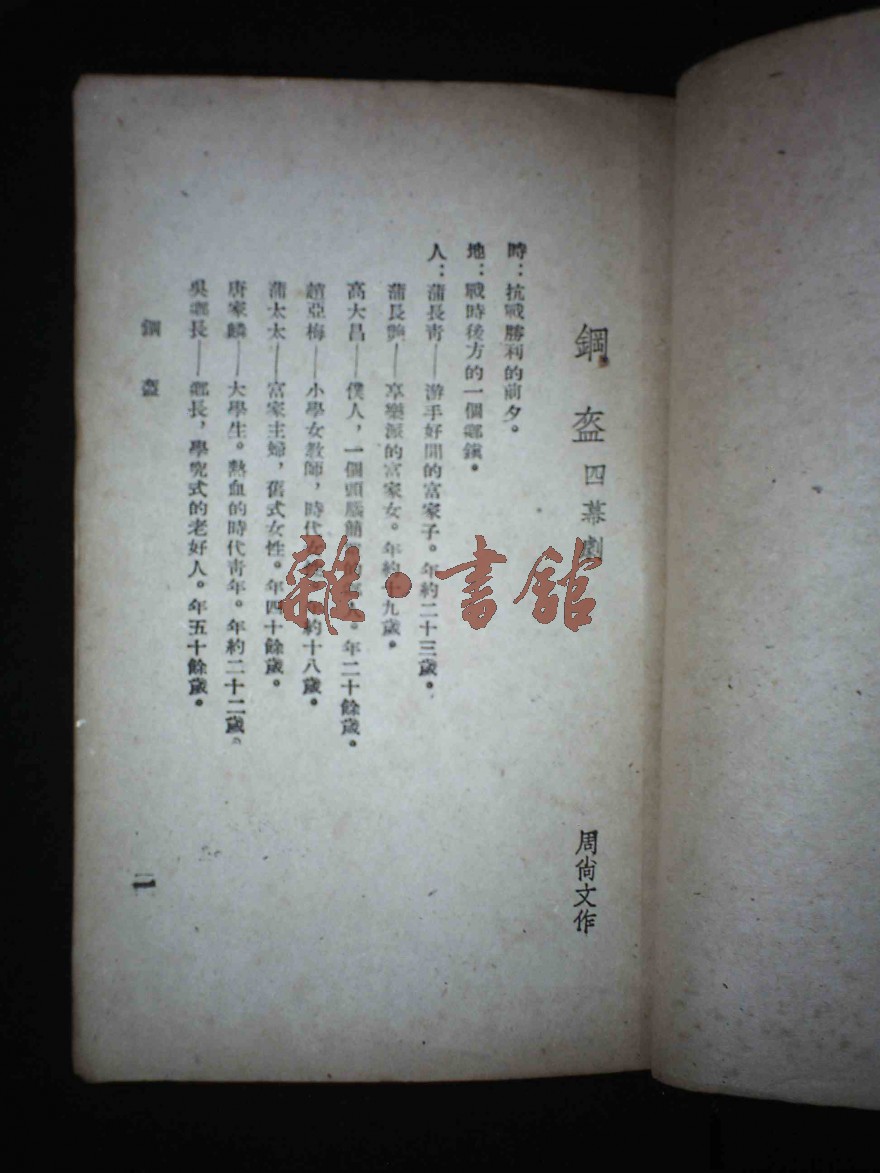 鋼盔 四幕劇
周尙文作
時：抗戰勝利的前夕。
地：戰時後方的一個鄉鎭。
人：蒲長靑——游手好閒的富家子。年約二十三歲。
蒲長艷——享樂派的富家女。年約十九歲。
高大昌——僕人，一個頭腦簡 的 。年二十餘歲。
趙亞梅——小學女敎師，時代女 約十八歲。
蒲太太——富家主婦，舊式女性。年四十餘歲。
唐家麟——大學生。熱血的時代靑年。年約二十二歲。
吳鄉長——鄉長，學究式的老好人。年五十餘歲。
鋼盔
雜·書舘